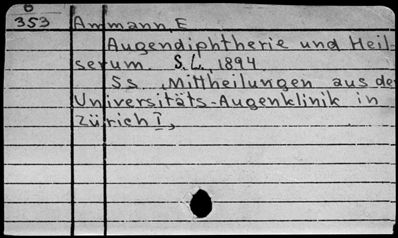 8
353 Ammann, E
Augendiphtherie und Heil-
serum. S.L., 1894
Ss „Mittheilungen aus der
Universitäts-Augenklinik in
Zürich I,